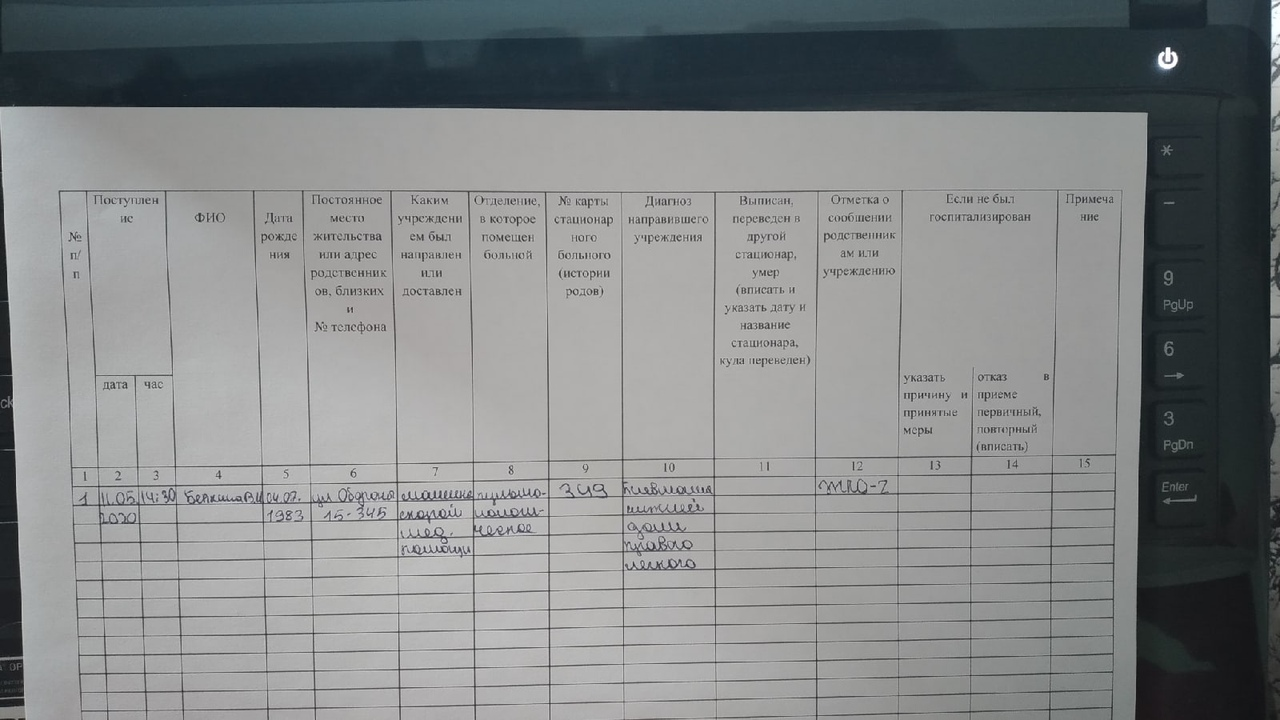 № п/п
Поступлен
ие
дата
час
ФИО
Дата
рожде
ния
Постоянное
место
жительства
или адрес
родственник
ов, близких
и
№ телефона
Каким
учреждени
ем был
направлен
или
доставлен
Отделение,
в которое
помещен
больной
№ карты
стационар
ного
больного
(истории
родов)
Диагноз
направившего
учреждения
Выписан,
переведен в
другой
стационар,
умер
(вписать и
указать дату и
название
стационара,
кула переведен)
Отметка о
сообщении
родственник
ам или
учреждению
Если не был
госпитализирован
указать
причину и
принятые
меры
отказ в
приеме
первичный,
повторный
(вписать)
Примеча
ние
1 2 3 4 5 6 7 8 9 10 11 12 13 14 15
1
11.05.
2020
14:30
04.07.
1983
ул. Обороны
15-345
машина
скорой
мед.
помощи
пульмо-
нологи-
ческое
349
Пневмония
нижней
доли
правого
легкого
*
–
9
PgUp
6
→
3
PgDn
Enter